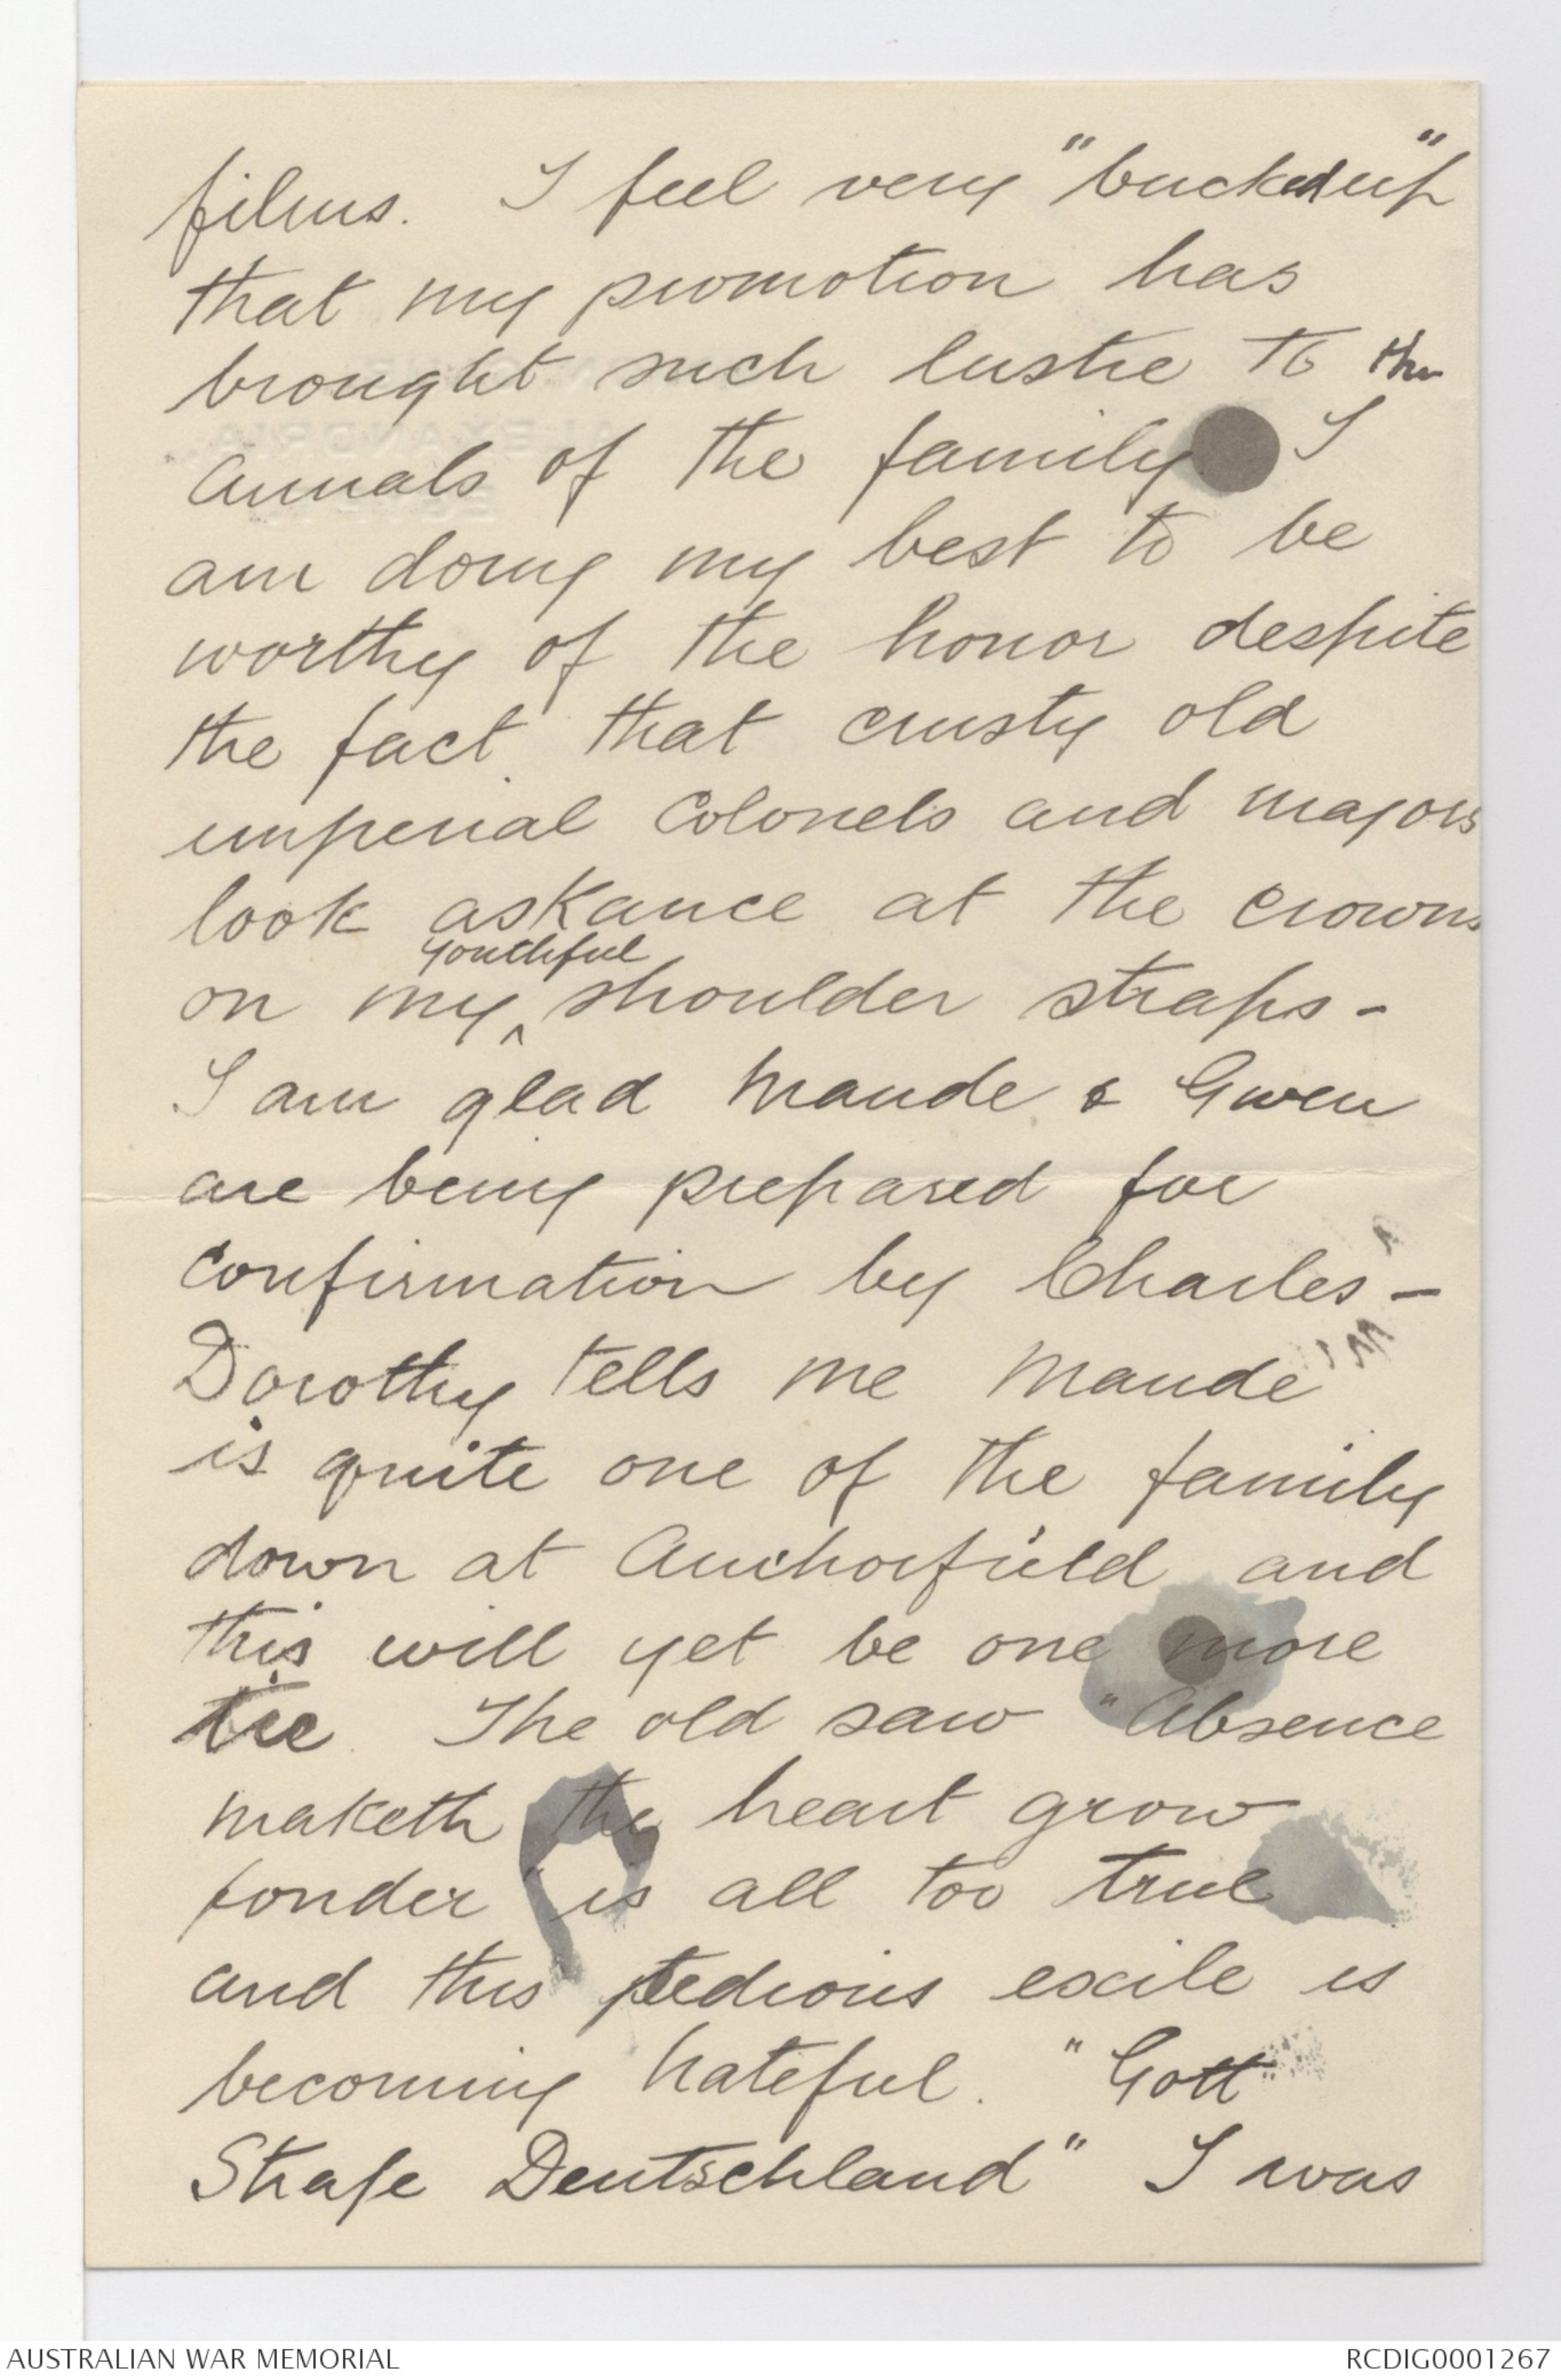 films. I feel very "bucked up"
that my promotion has
brought such lustre to the
annals of the family I
am doing my best to be
worthy of the honor despite
the fact that crusty old
imperial Colonels and majors
look askance at the crowns
on my youthful shoulder straps -
I am glad Maude & Gwen
are being prepared for
confirmation by Charles -
Dorothy tells me Maude
is quite one of the family
down at Anchorfield and
this will yet be one more
tie. The old saw "Absence
maketh the heart grow
fonder" is all too true
and this tedious exile is
becoming hateful. "Gott
Strafe Deutschland" I was
AUSTRALIAN WAR MEMORIAL
RCDIG0001267